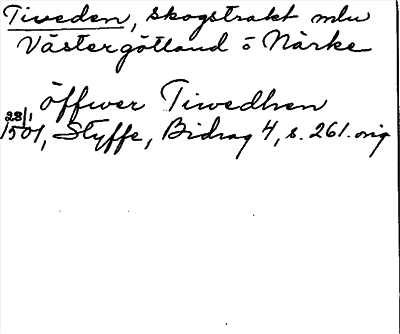 Tiveden, skogstrakt mlw
Västergötland o Närke
öffwer Tiwedhen
28/1
1501, Styffe, Bidrag 4, s. 261. orig